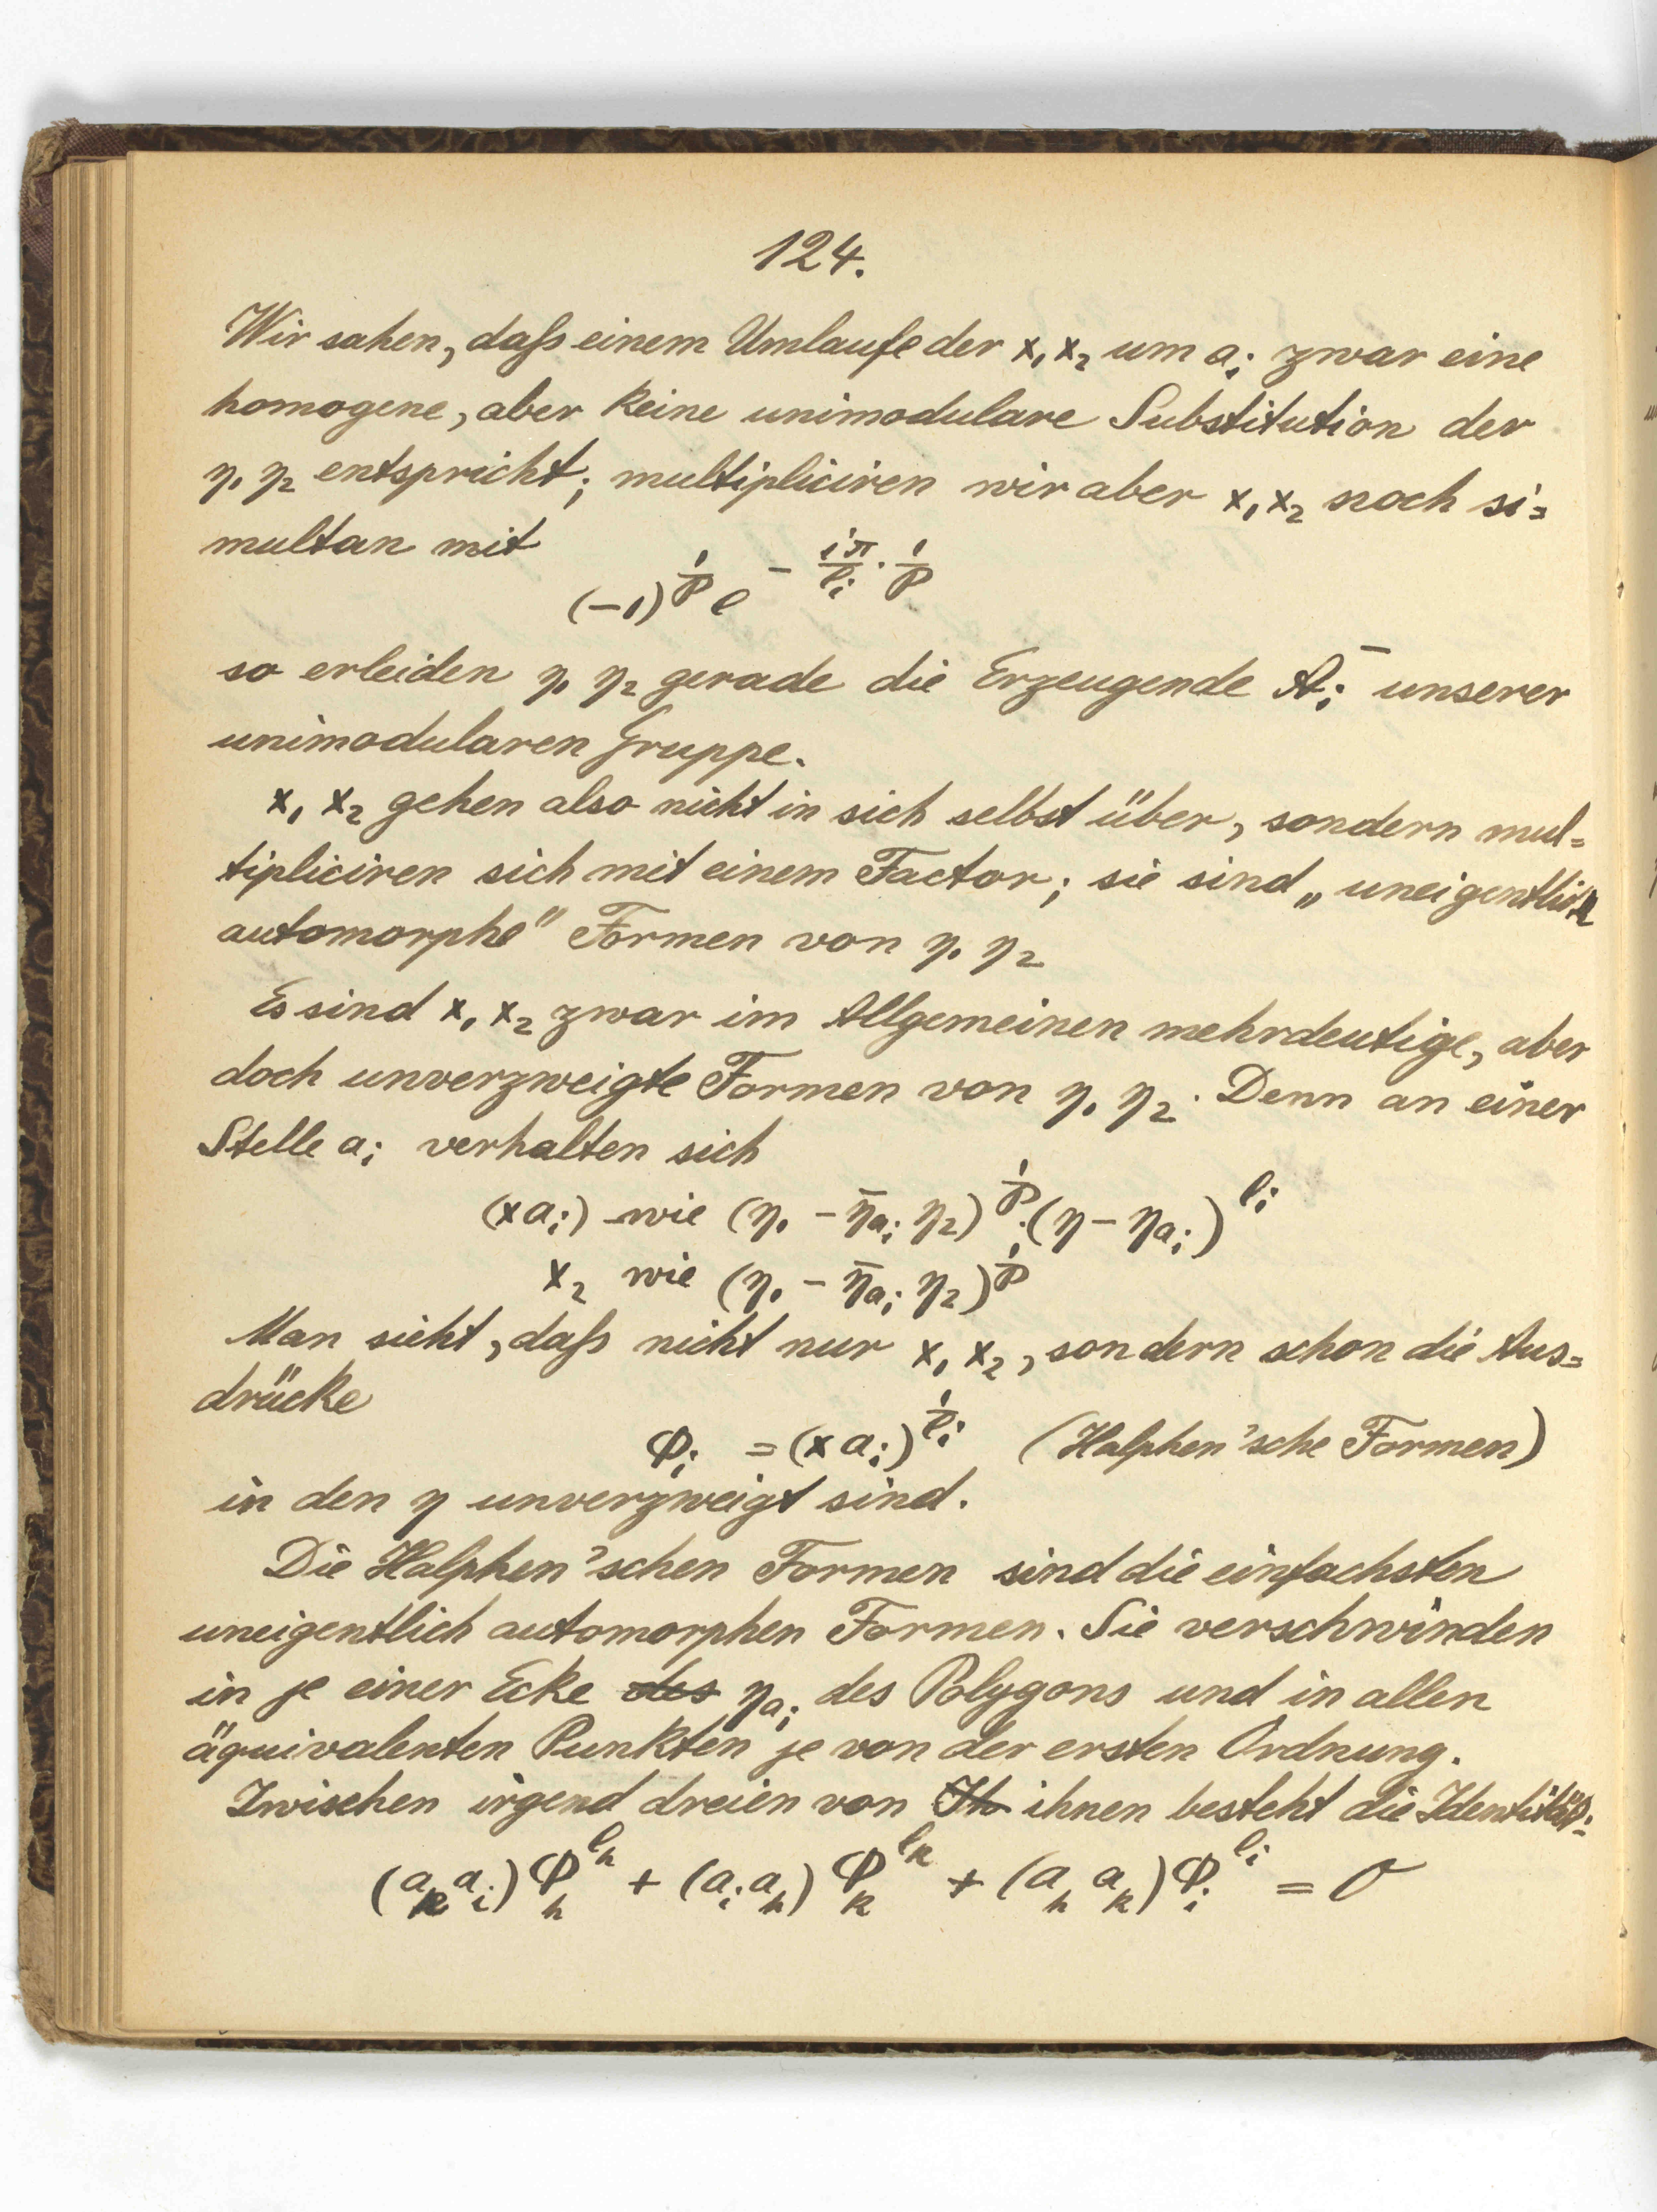 124.
Wir sahen, daß einem Umlaufe der x₁ x₂ um aᵢ zwar eine
homogene, aber keine unimodulare Substitution der
η₁ η₂ entspricht; multipliciren wir aber x₁ x₂ noch si=
multan mit
(−1)^{1/p} e^{− iπ/lᵢ · 1/p}
so erleiden η₁ η₂ gerade die Erzeugende Āᵢ unserer
unimodularen Gruppe.
x₁ x₂ gehen also nicht in sich selbst über, sondern mul=
tipliciren sich mit einem Factor; sie sind „uneigentlich
automorphe" Formen von η₁ η₂
Es sind x₁ x₂ zwar im Allgemeinen mehrdeutige, aber
doch unverzweigte Formen von η₁ η₂. Denn an einer
Stelle aᵢ verhalten sich
(xaᵢ) wie (η₁ − η̄_{aᵢ} η₂)^{1/p} · (η − η_{aᵢ})^{lᵢ}
x₂ wie (η₁ − η̄_{aᵢ} η₂)^{1/p}
Man sieht, daß nicht nur x₁ x₂, sondern schon die Aus=
drücke
φᵢ = (xaᵢ)^{1/lᵢ} (Halphen'sche Formen)
in den η unverzweigt sind.
Die Halphen'schen Formen sind die einfachsten
uneigentlich automorphen Formen. Sie verschwinden
in je einer Ecke des η_{aᵢ} des Polygons und in allen
äquivalenten Punkten je von der ersten Ordnung.
Zwischen irgend dreien von Ih ihnen besteht die Identität:
(a_k a_i) φ_h^{l_h} + (a_i a_h) φ_k^{l_k} + (a_h a_k) φ_i^{l_i} = 0